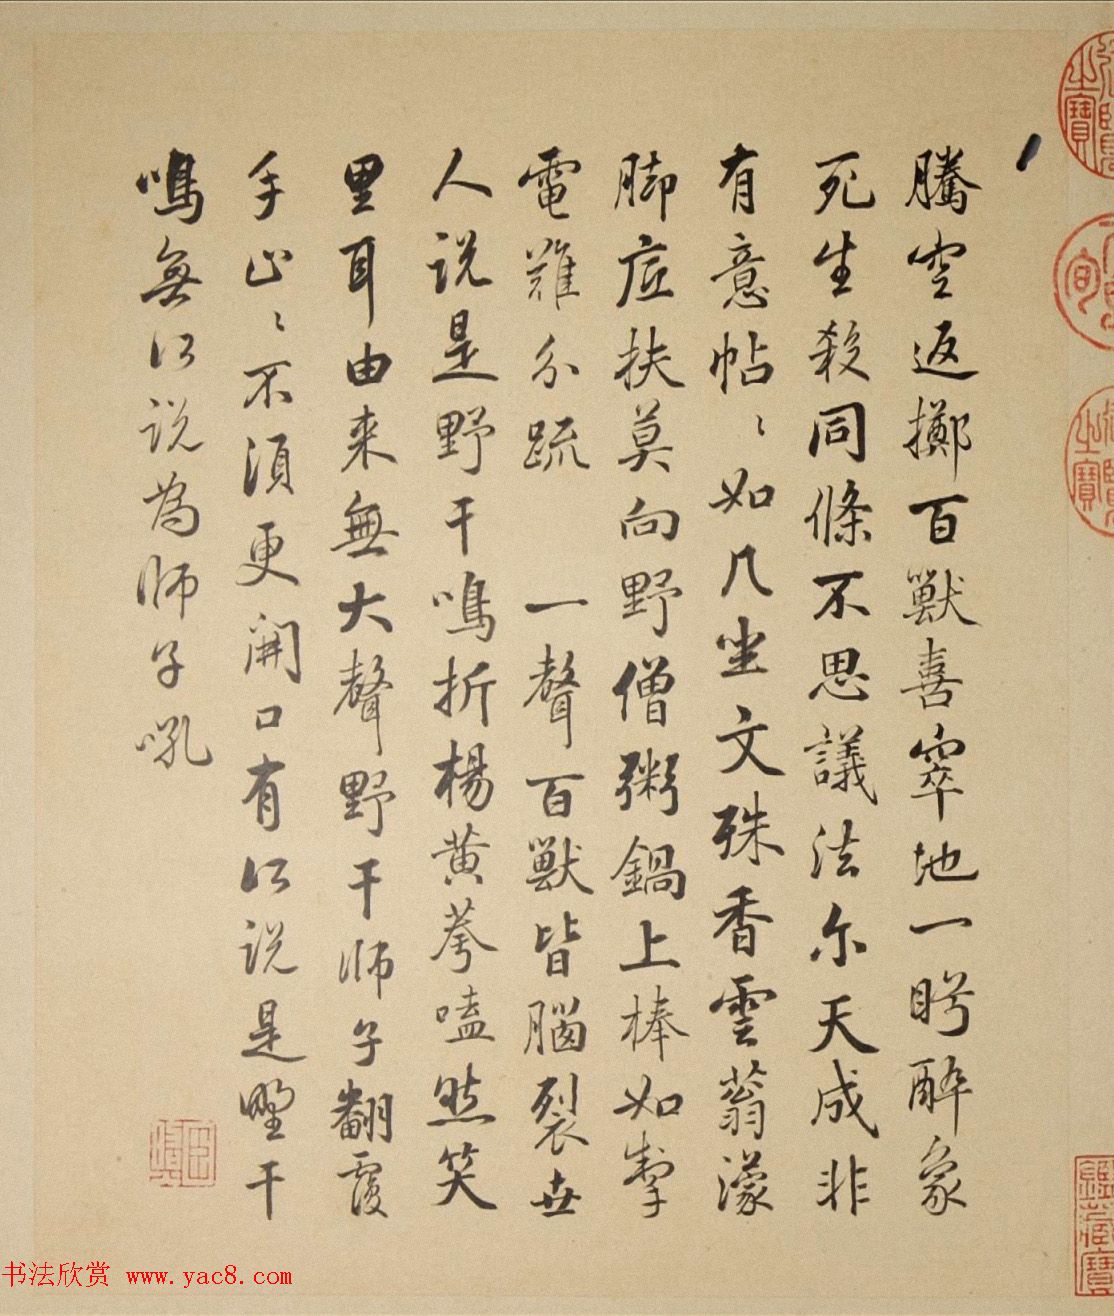 騰空返擲百獸喜窣地一眸醉象
死生殺同條不思議法尔天成非
有意帖〻如几坐文殊香雲蓊濛
脚应扶莫向野僧粥鍋上棒如掣
電難分疏 一聲百獸皆腦裂世
人说是野干鳴折楊黄荂嗑然笑
里耳由来無大聲野干师子翻覆
手止〻不須更開口有江说是野干
鳴無江说為师子吼
书法欣赏 www.yac8.com